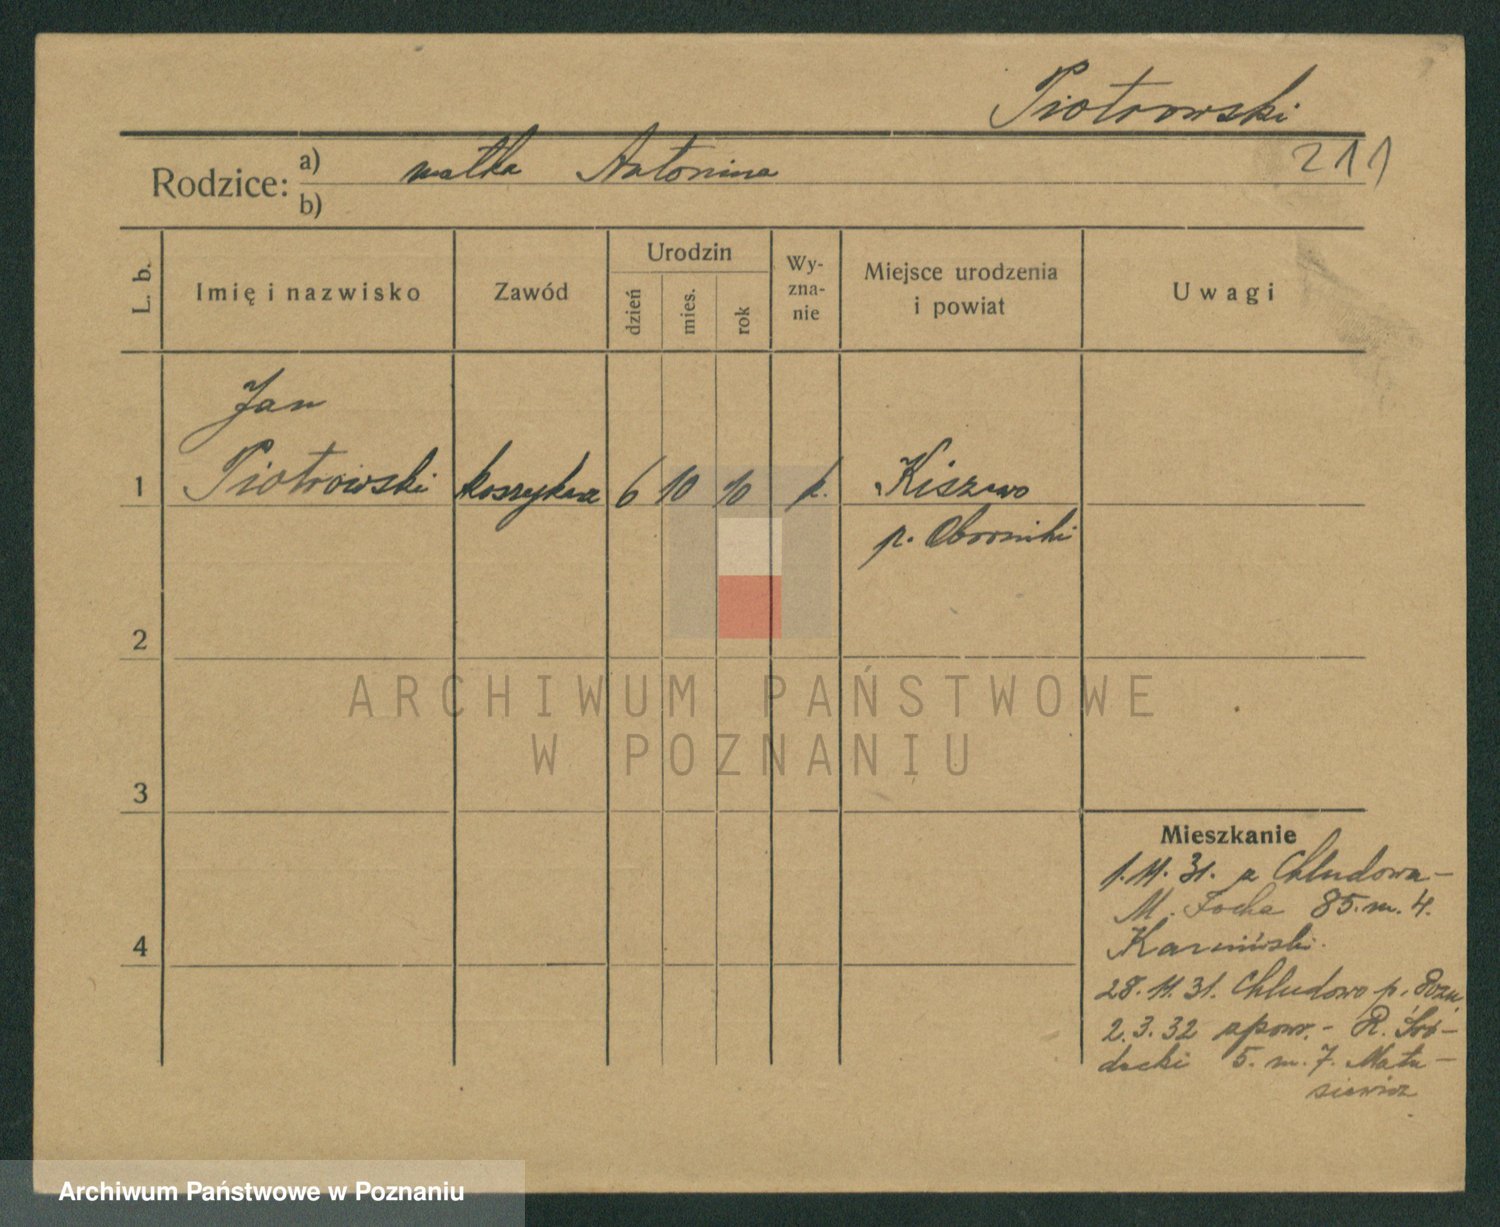 Piotrowski
211
Rodzice: a) matka Antonina
b)
L. b.
Imię i nazwisko
Zawód
Urodzin
dzień
mies.
rok
Wy-
zna-
nie
Miejsce urodzenia
i powiat
Uwagi
Jan
1 Piotrowski koszykarz 6 10 10 k. Kiszewo
p. Oborniki
2
3
4
Mieszkanie
1.11.31. z Chludowa-
M. Focha 85. m. 4.
28.11.31. Chludowo p. Pozn.
2.3.32 zpow.- R.
5. m. 7. Matu-
siewicz
ARCHIWUM PAŃSTWOWE
W POZNANIU
Archiwum Państwowe w Poznaniu